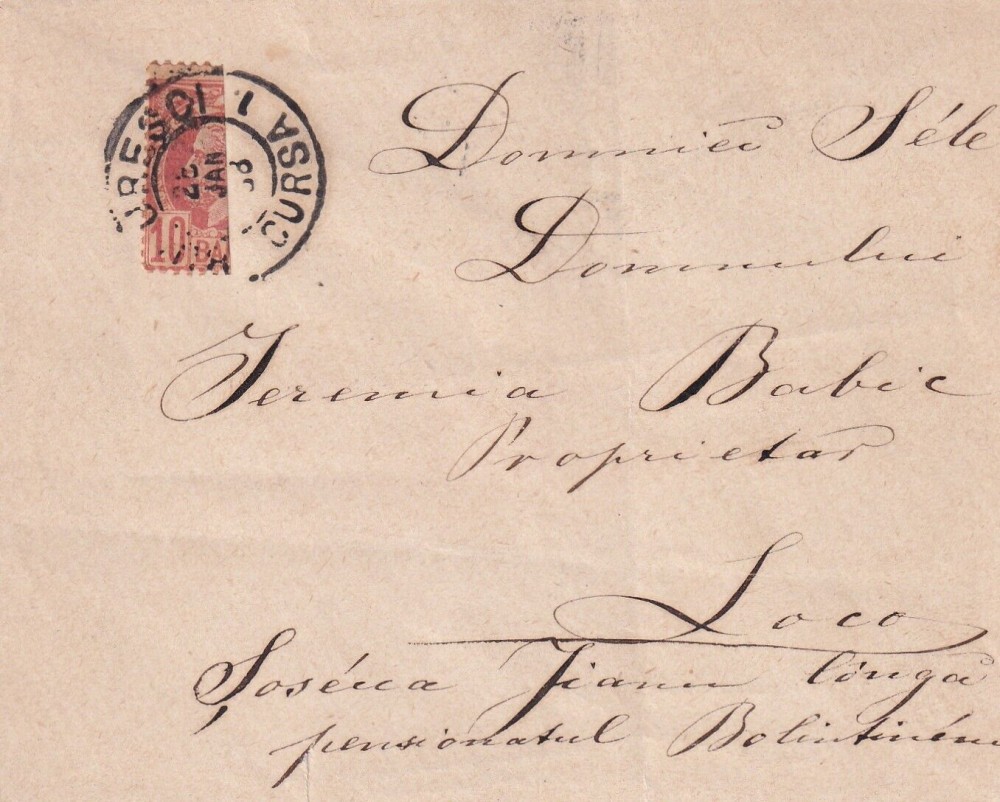 URESCI 1 CURSA
JAN
10 BA
Domniei Séle
Domnului
Jeremia Babic
Proprietar
Loco
Șoséua Jianu lônga
pensionatul Bolintinénu